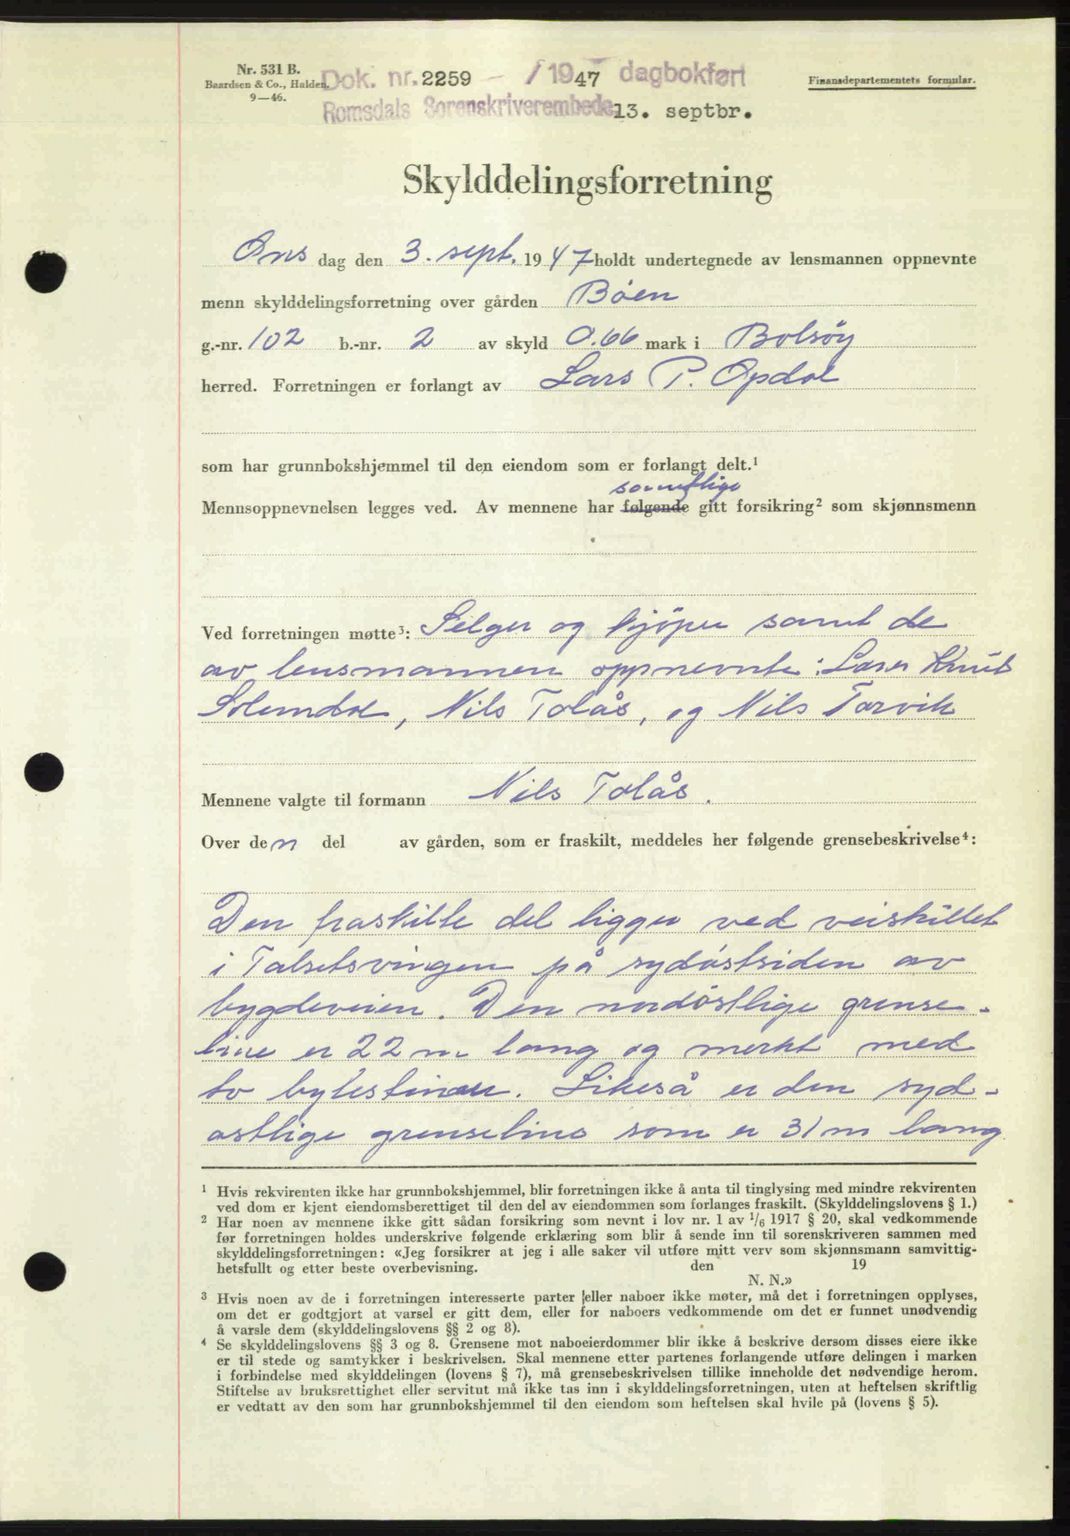 Nr. 531 B.
Baardsen & Co., Halden.
9—46.
Dok. nr. 2259 – / 1947 dagbokført
Romsdals Sorenskriverembede 13. septbr.
Finansdepartementets formular.
Skylddelingsforretning
Ons dag den 3. sept. 1947 holdt undertegnede av lensmannen oppnevnte
menn skylddelingsforretning over gården Böen
g.-nr. 102 b.-nr. 2 av skyld 0.66 mark i Bolsöy
herred. Forretningen er forlangt av Lars P. Opdal
som har grunnbokshjemmel til den eiendom som er forlangt delt.¹
samtlige
Mennsoppnevnelsen legges ved. Av mennene har følgende gitt forsikring² som skjønnsmenn
Ved forretningen møtte³: Selger og kjöper samt de
av lensmannen oppnevnte: Knut
Solemdal, Nils Tolås, og Nils Torvik
Mennene valgte til formann Nils Tolås.
Over den del av gården, som er fraskilt, meddeles her følgende grensebeskrivelse⁴:
Den fraskilte del ligger ved veiskillet
i Talsetsvingen på sydöstsiden av
bygdeveien. Den nordöstlige grense-
line er 22 m lang og merkt med
to bytesteiner. Likeså er den syd-
ostlige grenseline som er 31 m lang
¹ Hvis rekvirenten ikke har grunnbokshjemmel, blir forretningen ikke å anta til tinglysing med mindre rekvirenten
ved dom er kjent eiendomsberettiget til den del av eiendommen som forlanges fraskilt. (Skylddelingslovens § 1.)
² Har noen av mennene ikke gitt sådan forsikring som nevnt i lov nr. 1 av 1/6 1917 § 20, skal vedkommende
før forretningen holdes underskrive følgende erklæring som blir å sende inn til sorenskriveren sammen med
skylddelingsforretningen: «Jeg forsikrer at jeg i alle saker vil utføre mitt verv som skjønnsmann samvittig-
hetsfullt og etter beste overbevisning. den 19
N. N.»
³ Hvis noen av de i forretningen interesserte parter eller naboer ikke møter, må det i forretningen opplyses,
om det er godtgjort at varsel er gitt dem, eller for naboers vedkommende om det er funnet unødvendig
å varsle dem (skylddelingslovens §§ 2 og 8).
⁴ Se skylddelingslovens §§ 3 og 8. Grensene mot naboeierdommer blir ikke å beskrive dersom disses eiere ikke
er til stede og samtykker i beskrivelsen. Skal mennene etter partenes forlangende utføre delingen i marken
i forbindelse med skylddelingen (lovens § 7), må grensebeskrivelsen tillike inneholde det nødvendige herom.
Stiftelse av bruksrettighet eller servitut må ikke tas inn i skylddelingsforretningen, uten at heftelsen skriftlig
er vedtatt av den som har grunnbokshjemmel til den eiendom som heftelsen skal hvile på (lovens § 5).